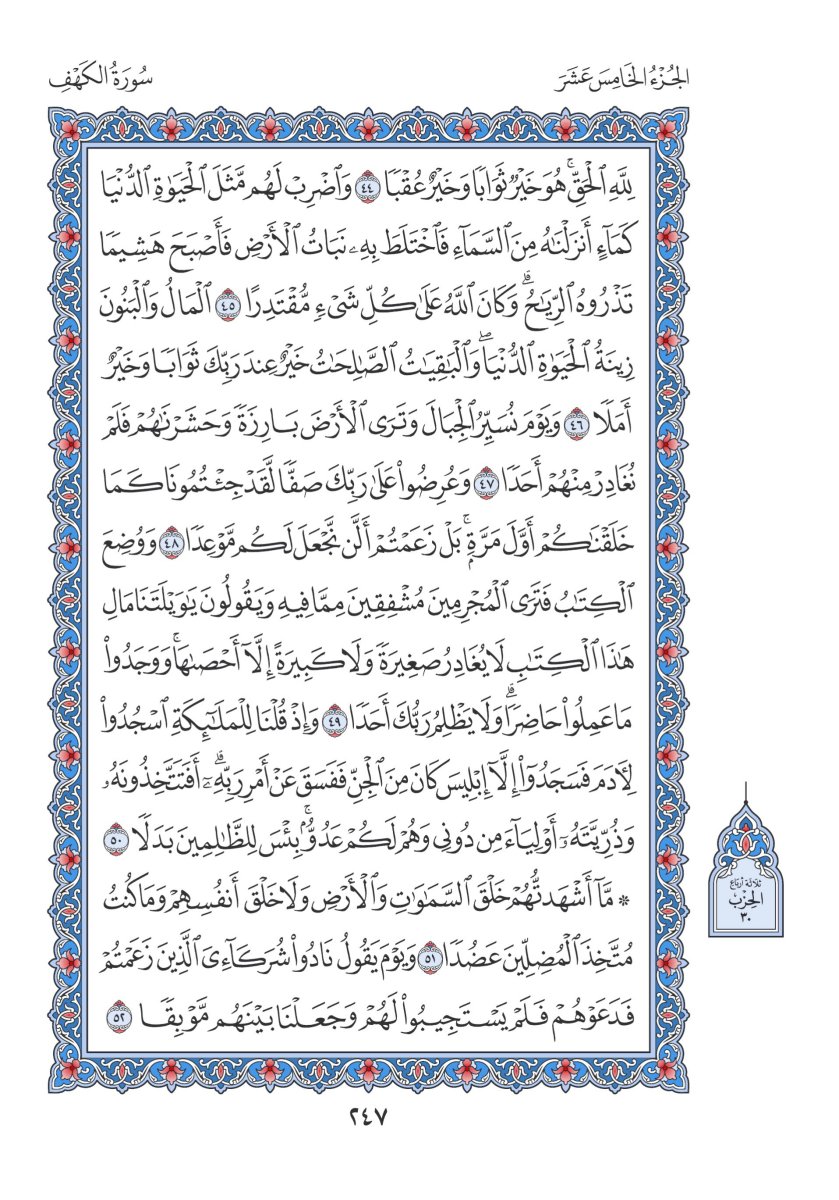 الجُزْءُ الخَامِسَ عَشَرَ
سُورَةُ الكَهْفِ
لِلَّهِ ٱلْحَقِّۚ هُوَ خَيْرٌ ثَوَابٗا وَخَيْرٌ عُقُبٗا ٤٤ وَٱضْرِبْ لَهُم مَّثَلَ ٱلْحَيَوٰةِ ٱلدُّنْيَا
كَمَآءٍ أَنزَلْنَٰهُ مِنَ ٱلسَّمَآءِ فَٱخْتَلَطَ بِهِۦ نَبَاتُ ٱلْأَرْضِ فَأَصْبَحَ هَشِيمٗا
تَذْرُوهُ ٱلرِّيَٰحُۗ وَكَانَ ٱللَّهُ عَلَىٰ كُلِّ شَىْءٍ مُّقْتَدِرًا ٤٥ ٱلْمَالُ وَٱلْبَنُونَ
زِينَةُ ٱلْحَيَوٰةِ ٱلدُّنْيَاۖ وَٱلْبَٰقِيَٰتُ ٱلصَّٰلِحَٰتُ خَيْرٌ عِندَ رَبِّكَ ثَوَابٗا وَخَيْرٌ
أَمَلٗا ٤٦ وَيَوْمَ نُسَيِّرُ ٱلْجِبَالَ وَتَرَى ٱلْأَرْضَ بَارِزَةٗ وَحَشَرْنَٰهُمْ فَلَمْ
نُغَادِرْ مِنْهُمْ أَحَدٗا ٤٧ وَعُرِضُوا۟ عَلَىٰ رَبِّكَ صَفّٗا لَّقَدْ جِئْتُمُونَا كَمَا
خَلَقْنَٰكُمْ أَوَّلَ مَرَّةِۭۚ بَلْ زَعَمْتُمْ أَلَّن نَّجْعَلَ لَكُم مَّوْعِدٗا ٤٨ وَوُضِعَ
ٱلْكِتَٰبُ فَتَرَى ٱلْمُجْرِمِينَ مُشْفِقِينَ مِمَّا فِيهِ وَيَقُولُونَ يَٰوَيْلَتَنَا مَالِ
هَٰذَا ٱلْكِتَٰبِ لَا يُغَادِرُ صَغِيرَةٗ وَلَا كَبِيرَةً إِلَّآ أَحْصَىٰهَاۚ وَوَجَدُوا۟
مَا عَمِلُوا۟ حَاضِرٗاۗ وَلَا يَظْلِمُ رَبُّكَ أَحَدٗا ٤٩ وَإِذْ قُلْنَا لِلْمَلَٰٓئِكَةِ ٱسْجُدُوا۟
لِءَادَمَ فَسَجَدُوٓا۟ إِلَّآ إِبْلِيسَ كَانَ مِنَ ٱلْجِنِّ فَفَسَقَ عَنْ أَمْرِ رَبِّهِۦٓۗ أَفَتَتَّخِذُونَهُۥ
وَذُرِّيَّتَهُۥٓ أَوْلِيَآءَ مِن دُونِى وَهُمْ لَكُمْ عَدُوُّۢۚ بِئْسَ لِلظَّٰلِمِينَ بَدَلٗا ٥٠
۞ مَّآ أَشْهَدتُّهُمْ خَلْقَ ٱلسَّمَٰوَٰتِ وَٱلْأَرْضِ وَلَا خَلْقَ أَنفُسِهِمْ وَمَا كُنتُ
مُتَّخِذَ ٱلْمُضِلِّينَ عَضُدٗا ٥١ وَيَوْمَ يَقُولُ نَادُوا۟ شُرَكَآءِىَ ٱلَّذِينَ زَعَمْتُمْ
فَدَعَوْهُمْ فَلَمْ يَسْتَجِيبُوا۟ لَهُمْ وَجَعَلْنَا بَيْنَهُم مَّوْبِقٗا ٥٢
ثلاثة أرباع
الحِزْب
٣٠
٢٤٧